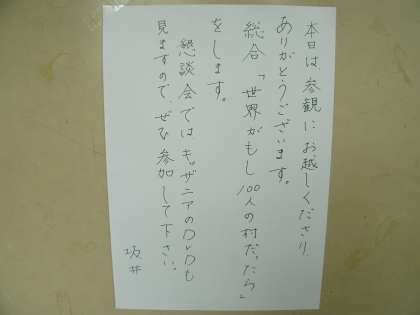 本日は参観にお越しくださり
ありがとうございます。
総合「世界がもし100人の村だったら」
をします。
懇談会ではキッザニアのDVDも
見ますので、ぜひ参加して下さい。
坂井